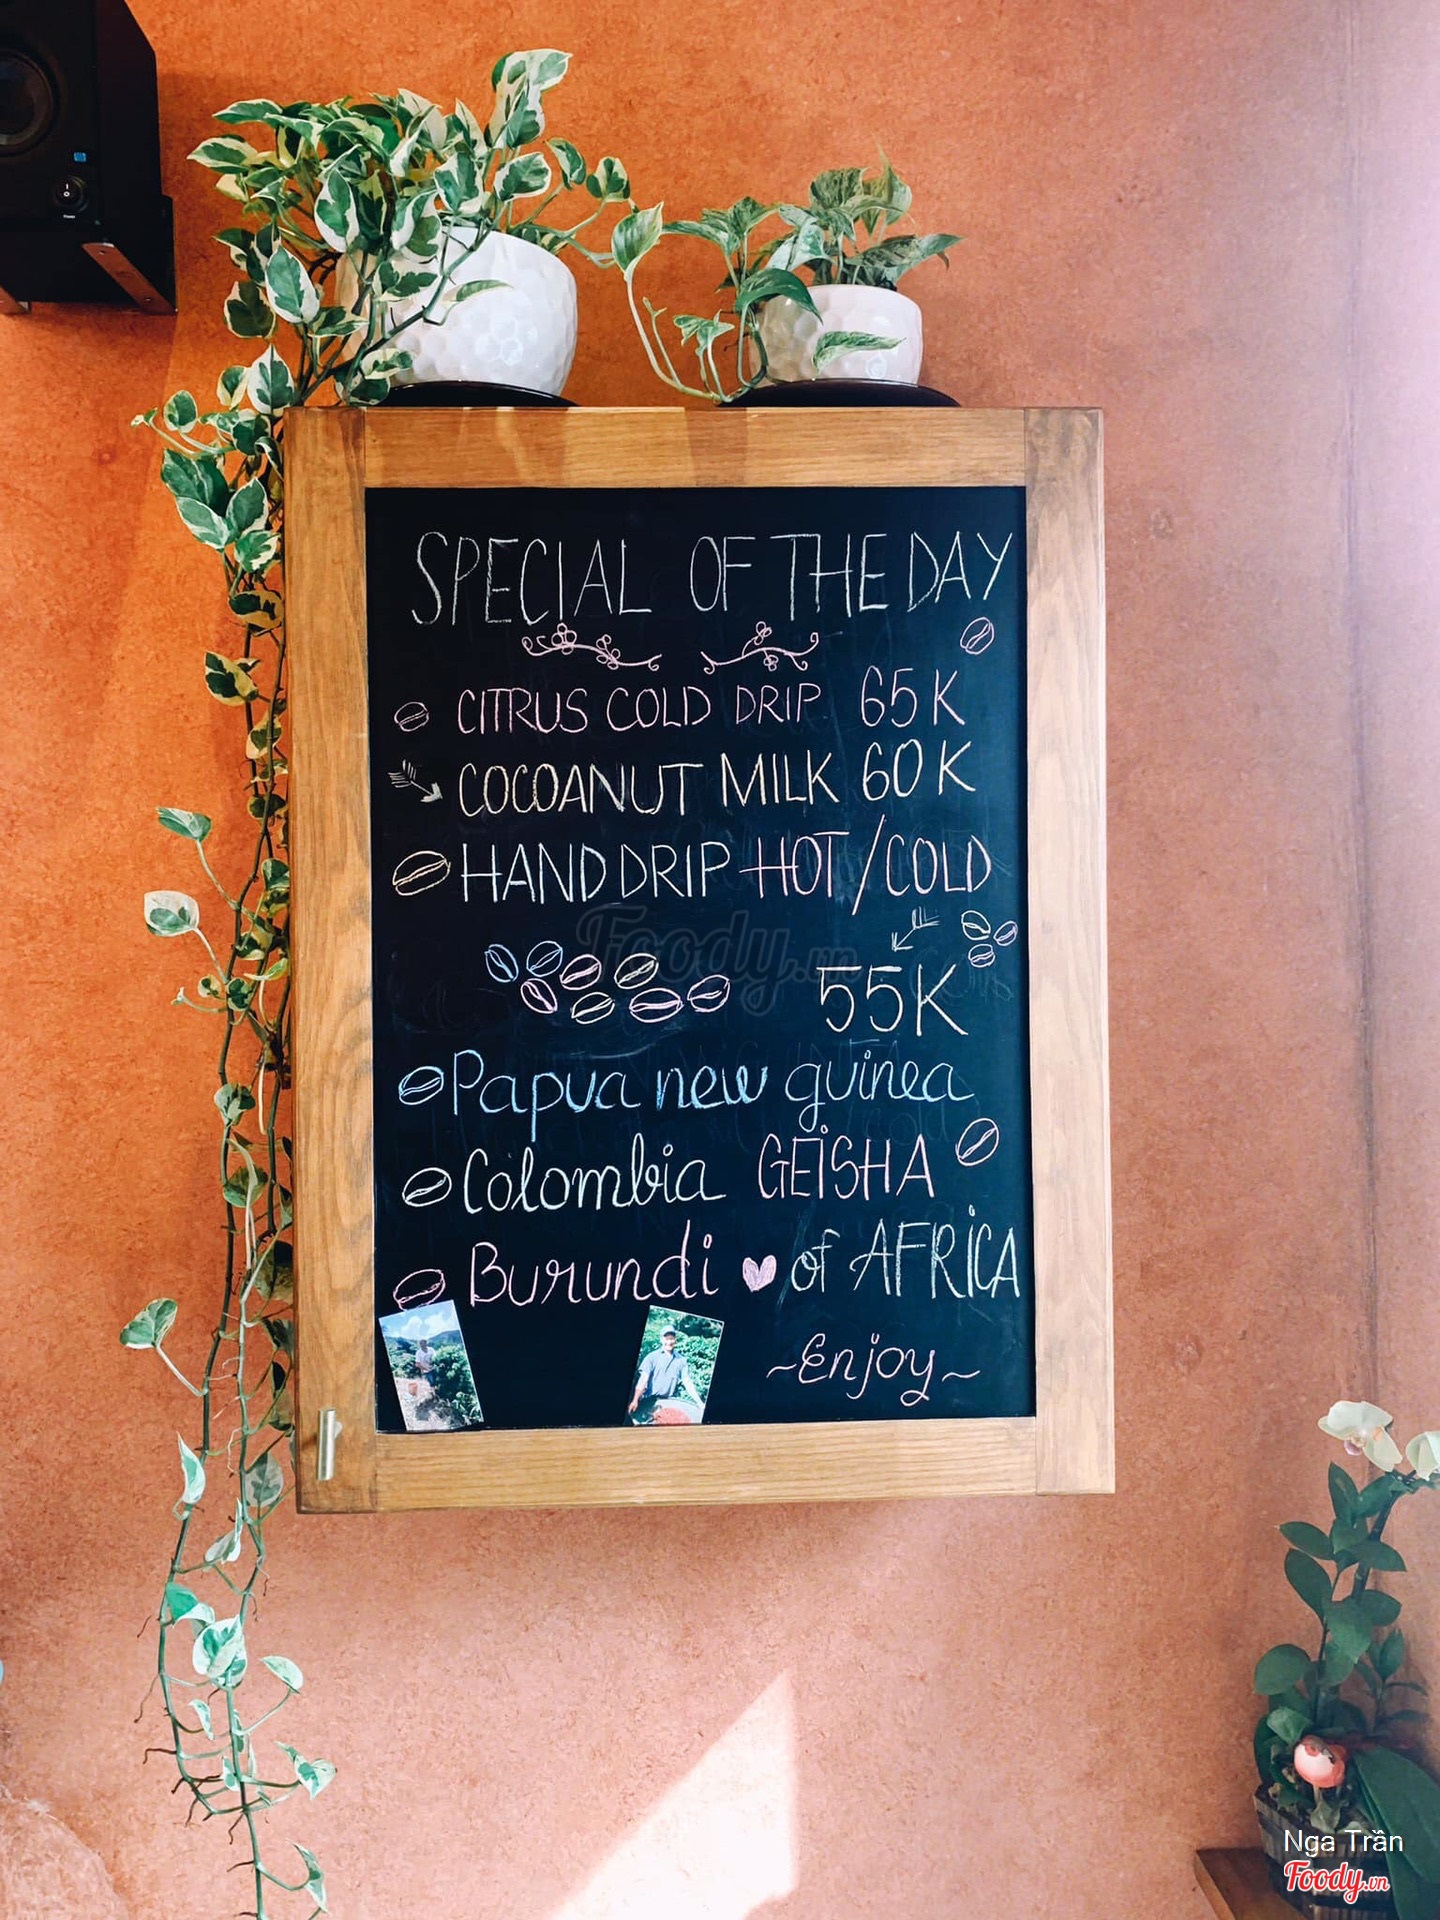 SPECIAL OF THE DAY
CITRUS COLD DRIP 65K
COCOANUT MILK 60K
HAND DRIP HOT/COLD
Foody.vn
55K
Papua new guinea
Colombia GEISHA
Burundi ♥ of AFRICA
~Enjoy~
Nga Trần
Foody.vn